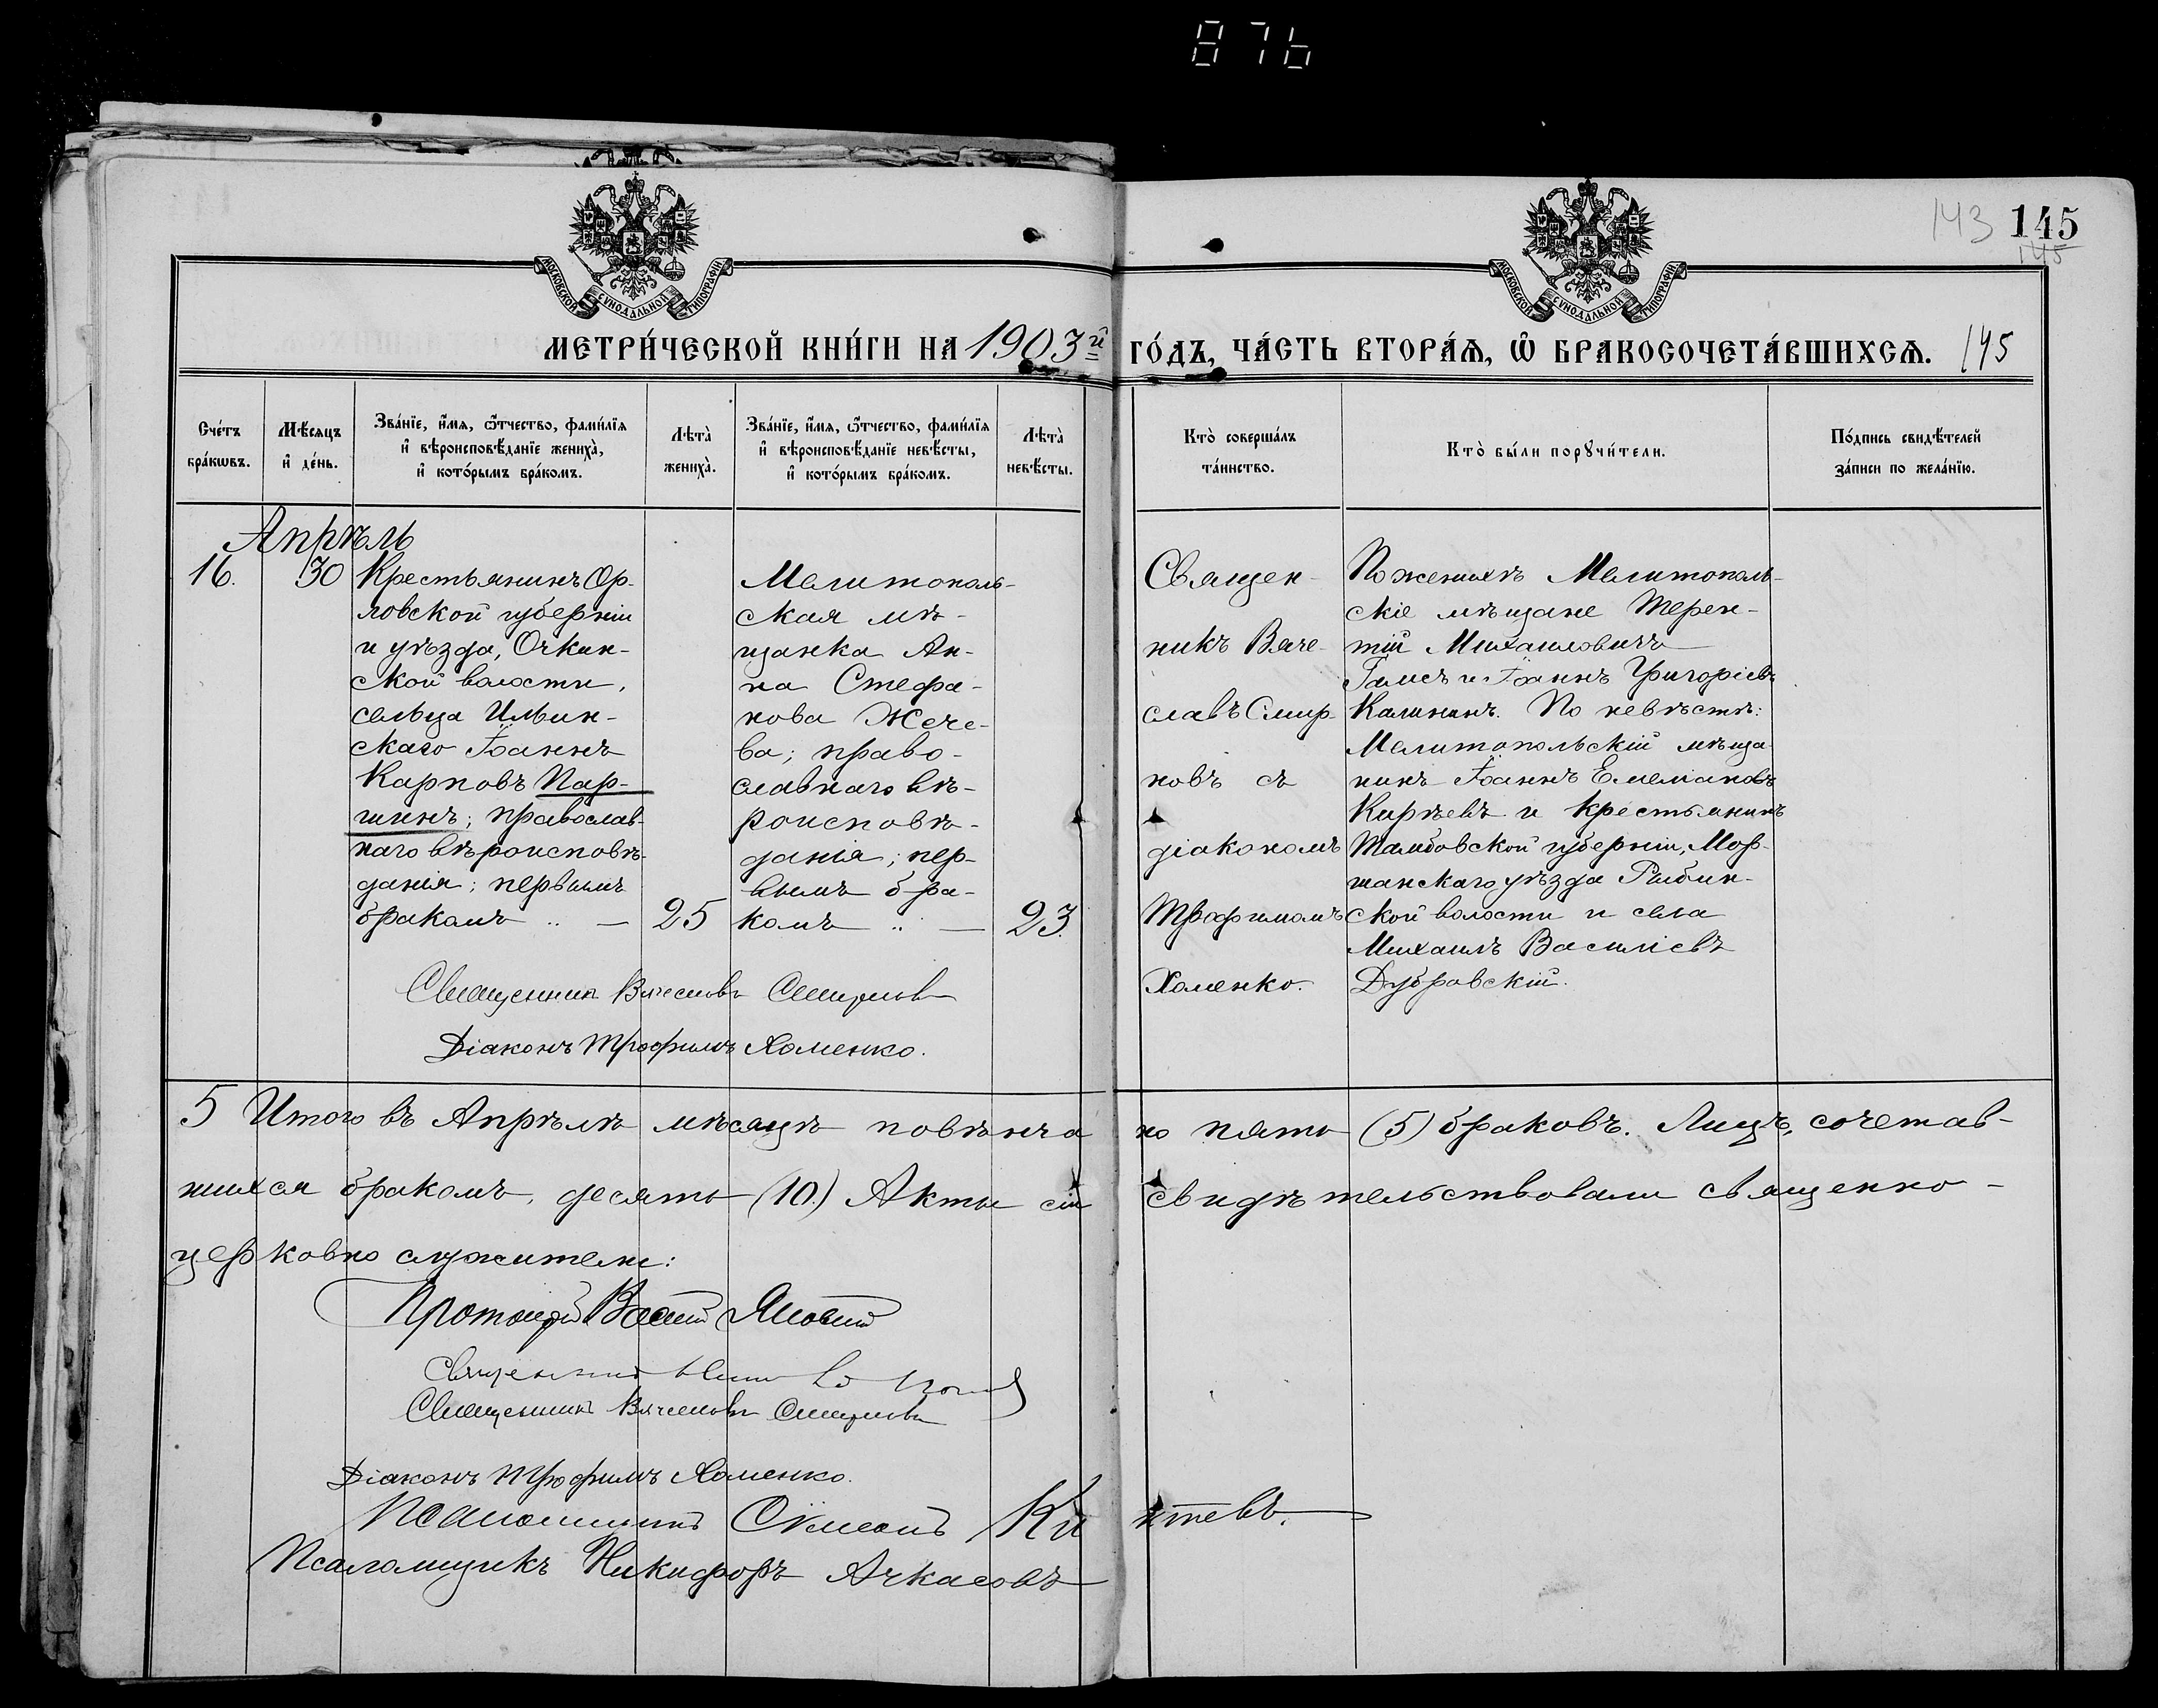 876
143 145
145
МОСКОВСКОЙ СѴНОДАЛЬНОЙ ТИПОГРАФІИ
МОСКОВСКОЙ СѴНОДАЛЬНОЙ ТИПОГРАФІИ
МЕТРИ́ЧЕСКОЙ КНИ́ГИ НА 1903й ГО́ДЪ, ЧА́СТЬ ВТОРА́Ѧ, Ѽ БРАКОСОЧЕТА́ВШИХСѦ. 145
Сче́тъ
бра́кѡвъ.
Мѣ́сяцъ
и҆ де́нь.
Зва́нїе, и҆́мя, ѻ҆́тчество, фами́лїя
и҆ вѣроисповѣ́данїе жениха̀,
и҆ кото́рымъ бра́комъ.
Лѣта̀
жениха̀.
Зва́нїе, и҆́мя, ѻ҆́тчество, фами́лїя
и҆ вѣроисповѣ́данїе невѣ́сты,
и҆ кото́рымъ бра́комъ.
Лѣта̀
невѣ́сты.
Кто̀ соверша́лъ
та́инство.
Кто̀ бы́ли порꙋчи́тели.
По́дпись свидѣ́телей
за́писи по жела́нїю.
Апрѣль
16.
30
Крестьянинъ Ор-
ловской губерніи
и уѣзда, Очкин-
ской волости,
сельца Ильин-
скаго Іоаннъ
Карповъ Пар-
шинъ; православ-
наго вѣроисповѣ-
данія; первымъ
бракомъ „ —
25
Мелитополь-
ская мѣ-
щанка Ан-
на Стефа-
нова Жече-
ва; право-
славнаго вѣ-
роисповѣ-
данія; пер-
вымъ бра-
комъ „ —
23.
Священ-
никъ Вяче-
славъ Смир-
новъ съ
діакономъ
Трофимомъ
Хоменко.
По женихѣ Мелитополь-
скіе мѣщане Терен-
тій Михаиловичъ
Галисъ и Іоаннъ Григорьевъ
Калининъ. По невѣстѣ:
Мелитопольскій мѣща-
нинъ Іоаннъ Емеліановъ
Кирѣевъ и крестьянинъ
Тамбовской губерніи, Мор-
шанскаго уѣзда Рыбин-
ской волости и села
Михаилъ Василіевъ
Дубровскій.
Священникъ Вячеславъ Смирновъ
Діаконъ Трофимъ Хоменко.
5 Итого въ Апрѣлѣ мѣсяцѣ повѣнчано пять (5) браковъ. Лицъ, сочетав-
шихся бракомъ, десять (10.) Акты сіи свидѣтельствовали священно-
церковно служители:
Протоіерей Василій Яновскій
Священникъ
Священникъ Вячеславъ Смирновъ
Діаконъ Трофимъ Хоменко.
Псаломщикъ Сѵмеонъ
Псаломщикъ Никифоръ Ачкасовъ